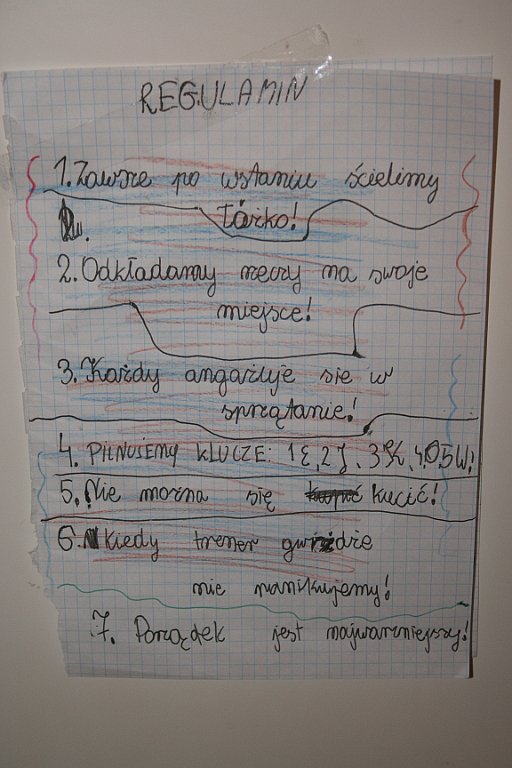 REGULAMIN
1. Zawsze po wstaniu ścielimy
łóżko!
2. Odkładamy rzeczy na swoje
miejsce!
3. Każdy angażuje się w
sprzątanie!
4. PILNUJEMY KLUCZE: 1 E, 2 J, 3 K, 4. O, 5 W!
5. Nie można się kucić!
6. Kiedy trener gwiżdże
nie panikujemy!
7. Porządek jest najważniejszy!